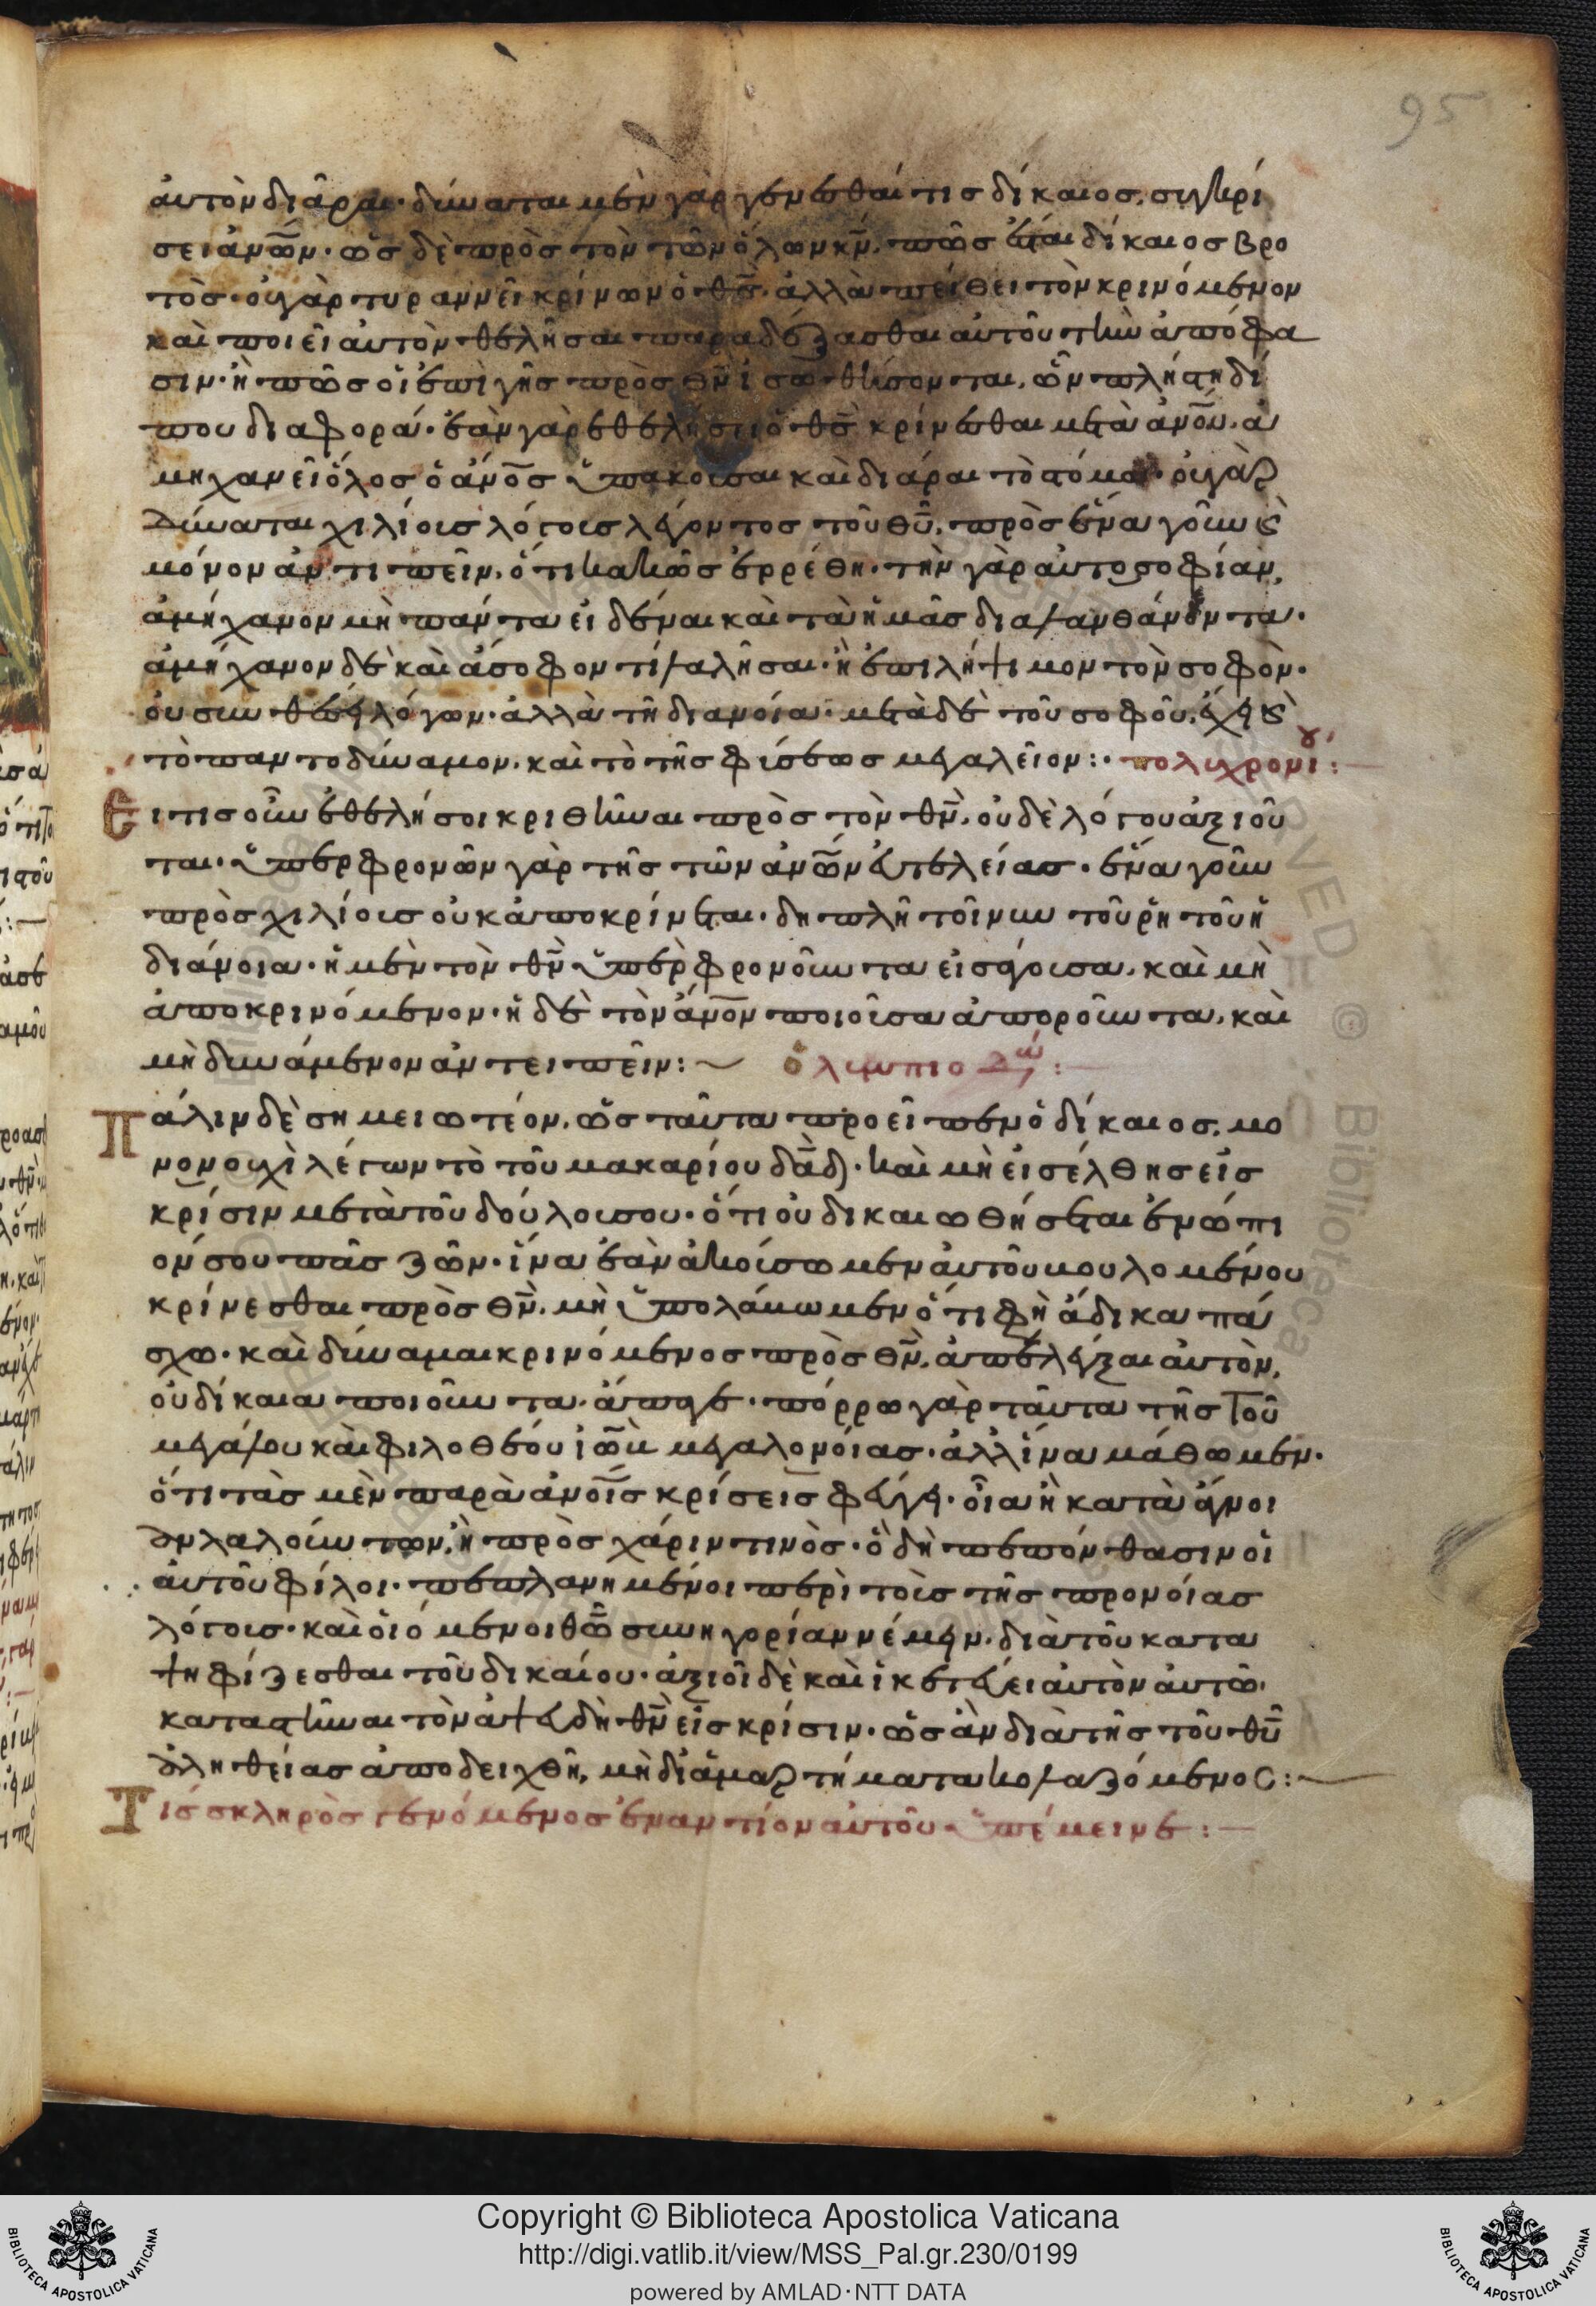 95
ἀυτὸν διᾶραι· δύναται μὲν γὰρ γενέσθαι τις δίκαιος, συγκρί
σει ἀνῶν· ὡς δὲ πρὸς τὸν τῶν ὅλων κν̄, πῶς ἔσται δίκαιος βρο
τὸς· οὐ γὰρ τυραννεῖ κρίνων ὁ θς̄· ἀλλὰ πείθει τὸν κρινόμενον
καὶ ποιεῖ ἀυτὸν θελῆσαι παραδέξασθαι αὐτοῦ τὴν ἀπόφα
σιν· ἢ πῶς οἱ ἐπὶ γῆς πρὸς θν̄ ἰσωθήσονται, ὧν πλήστη δί
που διαφορά· ἐὰν γὰρ ἐθελήσῃ ὁ θς̄ κρίνεσθαι μετὰ ἀνοῦ, ἀ
μηχανεῖ ὅλος ὁ ἄνος ὑπακοῦσαι καὶ διάραι τὸ στόμα· οὐ γὰρ
δύναται χιλίοις λόγοις λέγοντος τοῦ θῦ, πρὸς ἕνα γοῦν καὶ
μόνον ἀντιπεῖν, ὅτι κακῶς ἐρρέθη· τὴν γὰρ ἀυτοσοφίαν,
ἀμήχανον μὴ πάντα εἰδέναι καὶ τὰ ἡμᾶς διαλανθάνοντα·
ἀμήχανον δὲ καὶ ἄσοφον τί λαλῆσαι· ἢ ἐπιλήψιμον τὸν σοφὸν·
οὐ συνθέσει λόγων· ἀλλὰ τῆ διανοία· μετὰ δὲ τοῦ σοφοῦ, ἔχει καὶ
τὸ παντοδύναμον, καὶ τὸ τῆς φύσεως μεγαλεῖον:· πολυχρονί:
Εἴ τις οὖν ἐθελήσοι κριθῆναι πρὸς τὸν θν̄, οὐδὲ λόγου ἀξιοῦ
ται· ὑπερφρονῶν γὰρ τῆς τῶν ἀνῶν εὐτελείας· ἕνα γοῦν
πρὸς χιλίους οὐκ ἀποκρίνεται· διπλῆ τοίνυν τοῦ ῥητοῦ ἡ
διάνοια· ἡ μὲν τὸν θν̄ ὑπὲρφρονοῦντα εἰσάγουσα, καὶ μὴ
ἀποκρινόμενον· ἡ δὲ τὸν ἄνον ποιοῦσα ἀποροῦντα, καὶ
μὴ δυνάμενον ἀντειπεῖν:~ ὀλυμπιοδώ:
Πάλιν δὲ σημειωτέον, ὡς ταῦτα προεῖπεν ὁ δίκαιος, μο
νονουχὶ λέγων τὸ τοῦ μακαρίου δᾱδ· καὶ μὴ εἰσέλθης εἰς
κρίσιν μετὰ τοῦ δούλου σου· ὅτι οὐ δικαιωθήσεται ἐνώπι
όν σου πᾶς ζῶν· ἵνα ἐὰν ἀκούσωμεν ἀυτοῦ βουλομένου
κρίνεσθαι πρὸς θν̄, μὴ ὑπολάβωμεν ὅτι φὴ ἄδικα πά
σχω· καὶ δύναμαι κρινόμενος πρὸς θν̄, ἀπελέγξαι αὐτὸν,
οὐ δίκαια ποιοῦντα· ἄπαγε· πόρρω γὰρ ταῦτα τῆς τοῦ
μεγάλου καὶ φιλοθέου ἰὼβ μεγαλονοίας· ἀλλ' ἵνα μάθωμεν·
ὅτι τὰς μὲν παρὰ ἀνοις κρίσεις φεύγει· οἷα ἢ κατὰ ἄγνοι
αν λαλούντων, ἢ πρὸς χάριν τινὸς· ὃ δὴ πεπόνθασιν οἱ
ἀυτοῦ φίλοι· πεπλανημένοι περὶ τοὺς τῆς προνοίας
λόγους· καὶ οἰόμενοι θῶ συνηγορίαν νέμειν, διὰ τοῦ κατα
ψηφίζεσθαι τοῦ δικαίου· ἀξιοῖ δὲ καὶ ἱκετεύει ἀυτὸν ἀυτῶ
καταστῆναι τὸν ἀψευδῆ θν̄ εἰς κρίσιν· ὡς ἂν διὰ τῆς τοῦ θῦ
ἀληθείας ἀποδειχθῆ, μὴ δι' ἁμαρτήματα κολαζόμενος:
Τίς σκληρὸς γενόμενος ἐναντίον αὐτοῦ ὑπέμεινε:
Copyright © Biblioteca Apostolica Vaticana
http://digi.vatlib.it/view/MSS_Pal.gr.230/0199
powered by AMLAD·NTT DATA
BIBLIOTECA APOSTOLICA VATICANA
BIBLIOTECA APOSTOLICA VATICANA